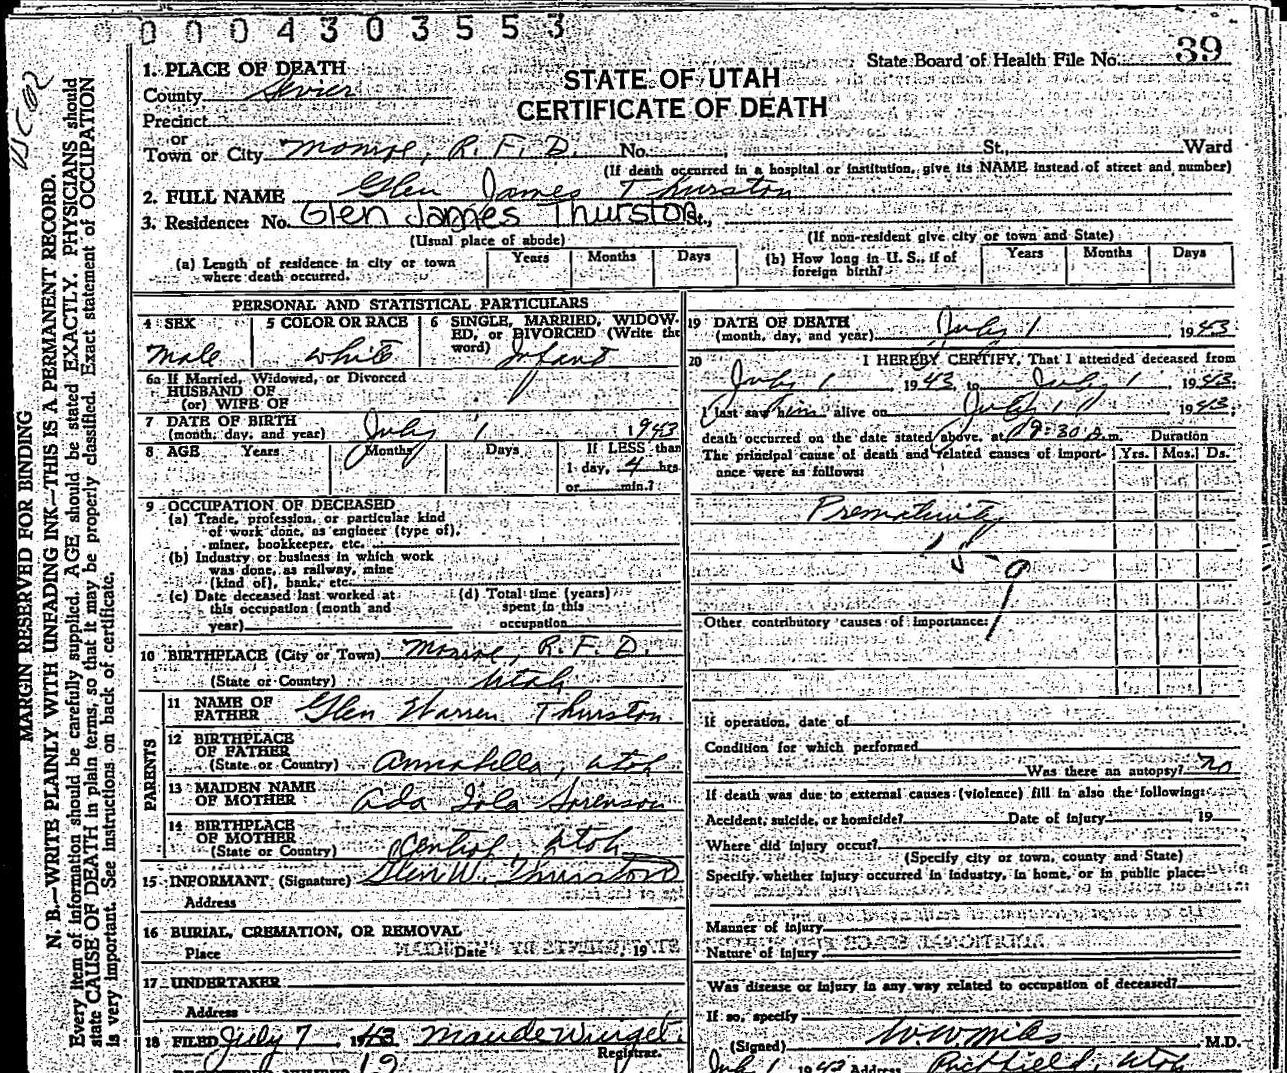 0 0 0 4 3 0 3 5 5 3
State Board of Health File No. 39
STATE OF UTAH
CERTIFICATE OF DEATH
MARGIN RESERVED FOR BINDING
N. B.—WRITE PLAINLY WITH UNFADING INK—THIS IS A PERMANENT RECORD.
Every item of information should be carefully supplied. AGE should be stated EXACTLY. PHYSICIANS should
state CAUSE OF DEATH in plain terms, so that it may be properly classified. Exact statement of OCCUPATION
is very important. See instructions on back of certificate.
1. PLACE OF DEATH
County Sevier
Precinct
or
Town or City Monroe, R. F. D. No. St., Ward
(If death occurred in a hospital or institution, give its NAME instead of street and number)
2. FULL NAME Glen James Thurston
3. Residence: No. Glen James Thurston St.,
(Usual place of abode) (If non-resident give city or town and State)
(a) Length of residence in city or town where death occurred. Years Months Days
(b) How long in U. S., if of foreign birth? Years Months Days
PERSONAL AND STATISTICAL PARTICULARS
4 SEX 5 COLOR OR RACE 6 SINGLE, MARRIED, WIDOW-
ED, or DIVORCED (Write the
word)
male white Infant
6a If Married, Widowed, or Divorced
HUSBAND OF
(or) WIFE OF
7 DATE OF BIRTH
(month, day, and year) July 1 1943
8 AGE Years Months Days If LESS than
1 day, 4 hrs.
or min.?
9 OCCUPATION OF DECEASED
(a) Trade, profession, or particular kind
of work done, as engineer (type of),
miner, bookkeeper, etc.
(b) Industry or business in which work
was done, as railway, mine
(kind of), bank, etc.
(c) Date deceased last worked at
this occupation (month and
year)
(d) Total time (years)
spent in this
occupation
10 BIRTHPLACE (City or Town) Monroe, R. F. D.
(State or Country) Utah
PARENTS
11 NAME OF
FATHER Glen Warren Thurston
12 BIRTHPLACE
OF FATHER
(State or Country) Annabella, Utah
13 MAIDEN NAME
OF MOTHER Ada Iola Sorenson
14 BIRTHPLACE
OF MOTHER
(State or Country) Central, Utah
15 INFORMANT (Signature) Glen W. Thurston
Address
16 BURIAL, CREMATION, OR REMOVAL
Place Date , 19
17 UNDERTAKER
Address
18 FILED July 7, 1943
Registrar.
19 DATE OF DEATH
(month, day, and year) July 1 1943
20 I HEREBY CERTIFY, That I attended deceased from
July 1 1943, to July 1, 1943;
I last saw him alive on July 1, 1943;
death occurred on the date stated above, at 9:30 A.m. Duration
The principal cause of death and related causes of import- Yrs. Mos. Ds.
ance were as follows:
Prematurity
159
Other contributory causes of importance:
If operation, date of
Condition for which performed
Was there an autopsy? No
If death was due to external causes (violence) fill in also the following:
Accident, suicide, or homicide? Date of injury 19
Where did injury occur?
(Specify city or town, county and State)
Specify whether injury occurred in industry, in home, or in public place:
Manner of injury
Nature of injury
Was disease or injury in any way related to occupation of deceased?
If so, specify
(Signed) M.D.
July 1 1943 Address Richfield, Utah